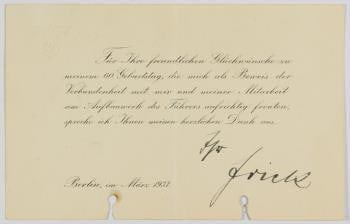 Für Ihre freundlichen Glückwünsche zu
meinem 60. Geburtstag, die mich als Beweis der
Verbundenheit mit mir und meiner Mitarbeit
am Aufbauwerk des Führers aufrichtig freuten,
spreche ich Ihnen meinen herzlichen Dank aus.
Ihr
Frick
Berlin, im März 1937.